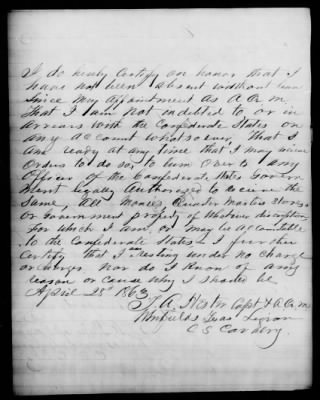 I do hereby Certify on honor that I
have not been absent without leave
Since my appointment as A.Q.M.
That I am not indebted to or in
arrears with the Confederate States on
any account whatsoever, That I
am ready at any time that I may receive
Orders to do so, to turn over to any
Officer of the Confederate States Govern
ment legally Authorized to receive the
Same, All Monies, Quarter Masters stores
Or Government property of Whatever description
for which I am, or may be accountable
to the Confederate States — I further
Certify that I am resting under no charge
or Nor do I know of any
reason or cause why I should be
April 23rd 1863
J. A. Capt & A.Q.M.
Texas Legion
C S Cavalry